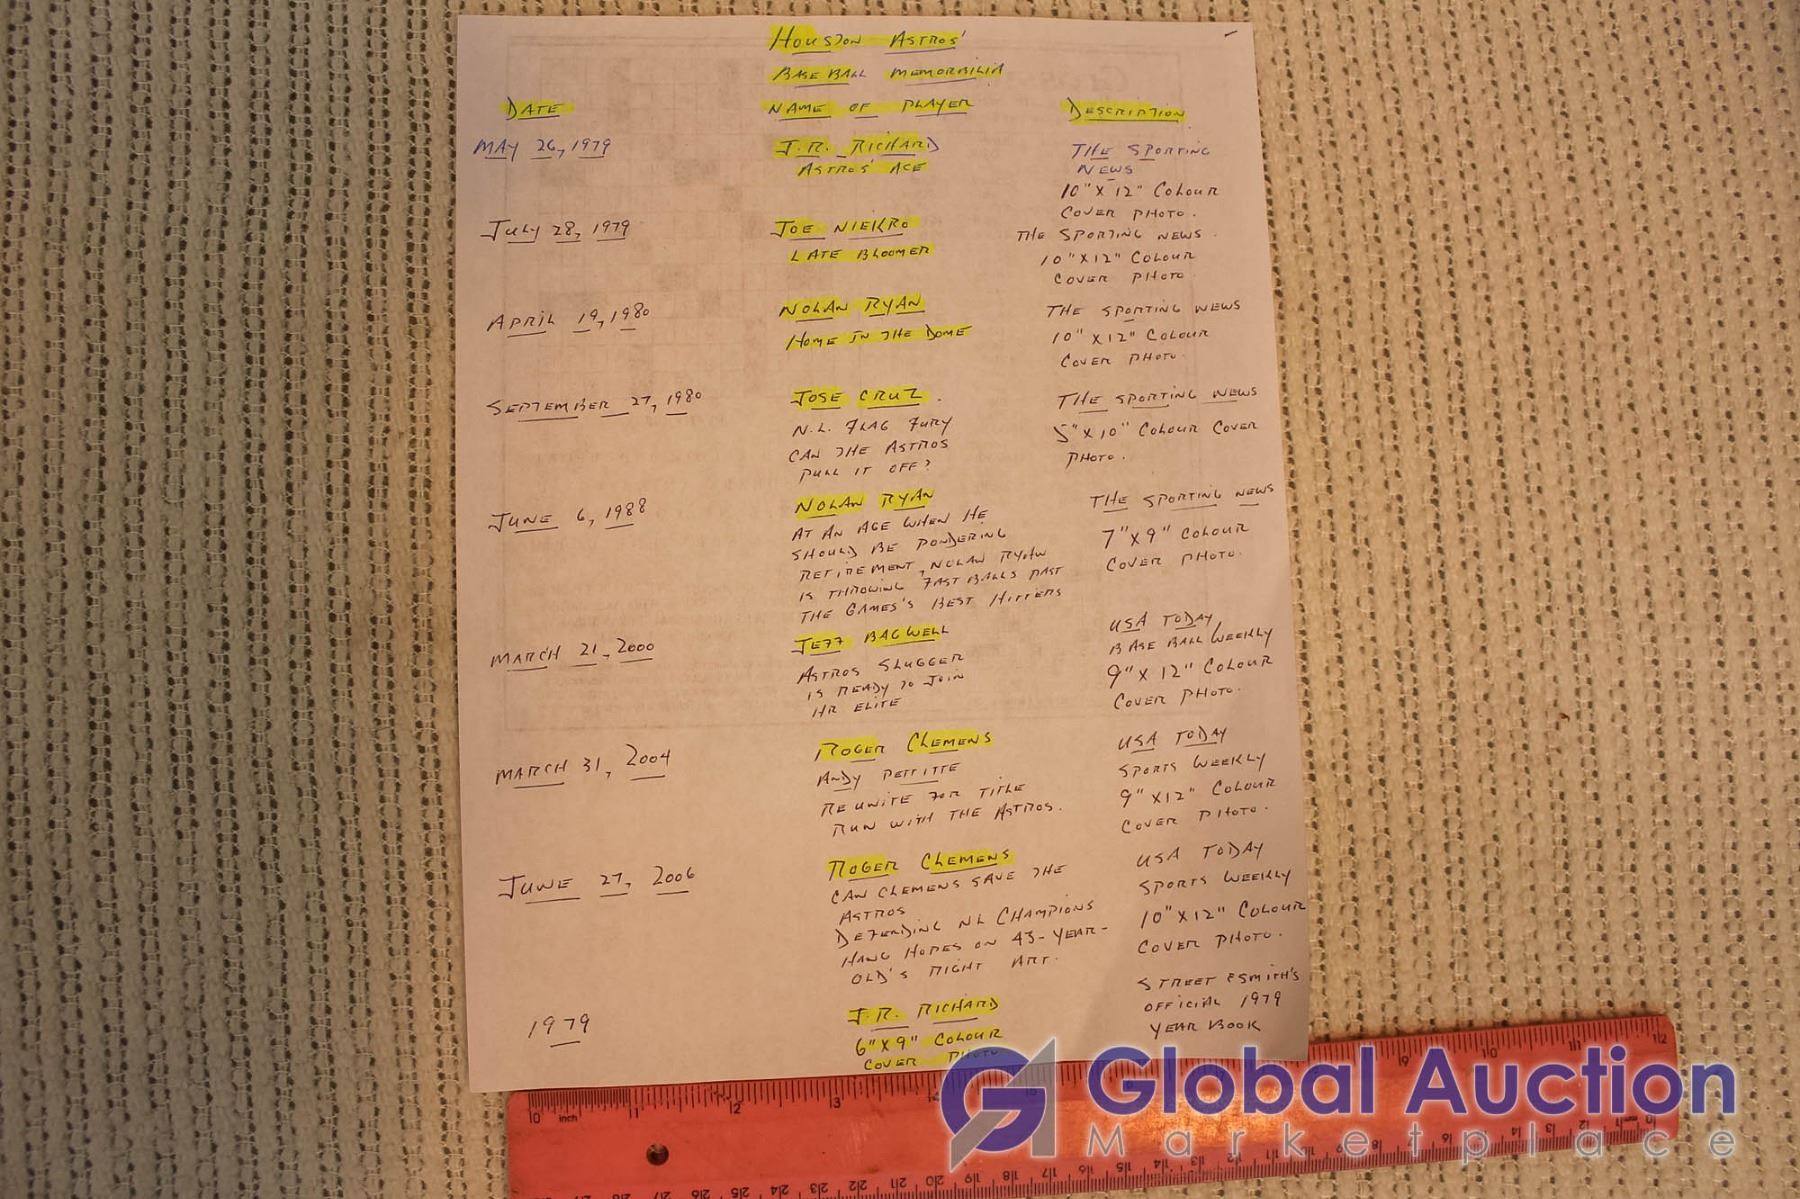 HOUSTON ASTROS'
BASE BALL MEMORBILIA
DATE NAME OF PLAYER DESCRIPTION
MAY 26, 1979 J.R. RICHARD THE SPORTING
ASTROS' ACE NEWS
10" X 12" COLOUR
COVER PHOTO.
JULY 28, 1979 JOE NIEKRO THE SPORTING NEWS.
LATE BLOOMER 10" X 12" COLOUR
COVER PHOTO.
APRIL 19, 1980 NOLAN RYAN THE SPORTING NEWS
HOME IN THE DOME 10" X 12" COLOUR
COVER PHOTO.
SEPTEMBER 27, 1980 JOSE CRUZ. THE SPORTING NEWS
N.L. FLAG FURY 5" X 10" COLOUR COVER
CAN THE ASTROS PHOTO.
PULL IT OFF?
JUNE 6, 1988 NOLAN RYAN THE SPORTING NEWS
AT AN AGE WHEN HE 7" X 9" COLOUR
SHOULD BE PONDERING COVER PHOTO.
RETIREMENT, NOLAN RYAN
IS THROWING FAST BALLS PAST
THE GAMES'S BEST HITTERS
MARCH 21, 2000 JEFF BAGWELL USA TODAY
ASTROS SLUGGER BASE BALL WEEKLY
IS READY TO JOIN 9" X 12" COLOUR
'HR ELITE COVER PHOTO.
MARCH 31, 2004 ROGER CLEMENS USA TODAY
ANDY PETTITTE SPORTS WEEKLY
REUNITE FOR TITLE 9" X 12" COLOUR
RUN WITH THE ASTROS. COVER PHOTO.
JUNE 27, 2006 ROGER CLEMENS USA TODAY
CAN CLEMENS SAVE THE SPORTS WEEKLY
ASTROS 10" X 12" COLOUR
DEFERDING NL CHAMPIONS COVER PHOTO.
HANG HOPES ON 43-YEAR-
OLD'S RIGHT ART.
1979 J.R. RICHARD STREET & SMITH'S
6" X 9" COLOUR OFFICIAL 1979
COVER PHOTO YEAR BOOK
Global Auction
Marketplace
0 inch 1 2 3 9 10 11 12